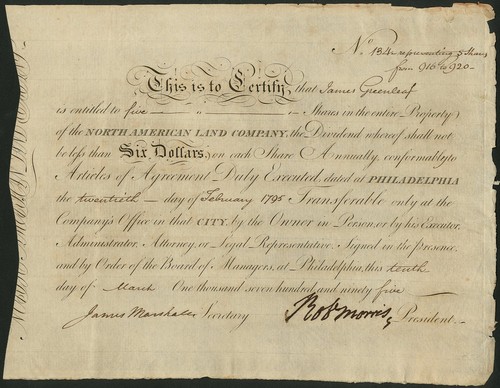 No. 134 representing 5 Shares
from 916 to 920 —
This is to Certify, that James Greenleaf
is entitled to five — " — Shares in the entire Property
of the NORTH AMERICAN LAND COMPANY, the Dividend whereof shall not
be less than Six Dollars, on each Share Annually, conformably to
Articles of Agreement Duly Executed, dated at PHILADELPHIA
the twentieth — day of February 1795 Transferable only at the
Company's Office in that CITY, by the Owner in Person, or by his Executor,
Administrator, Attorney, or Legal Representative. Signed in the presence,
and by Order of the Board of Managers, at Philadelphia, this tenth
day of March One thousand seven hundred, and ninety five
James Marshall Secretary Rob Morris President.